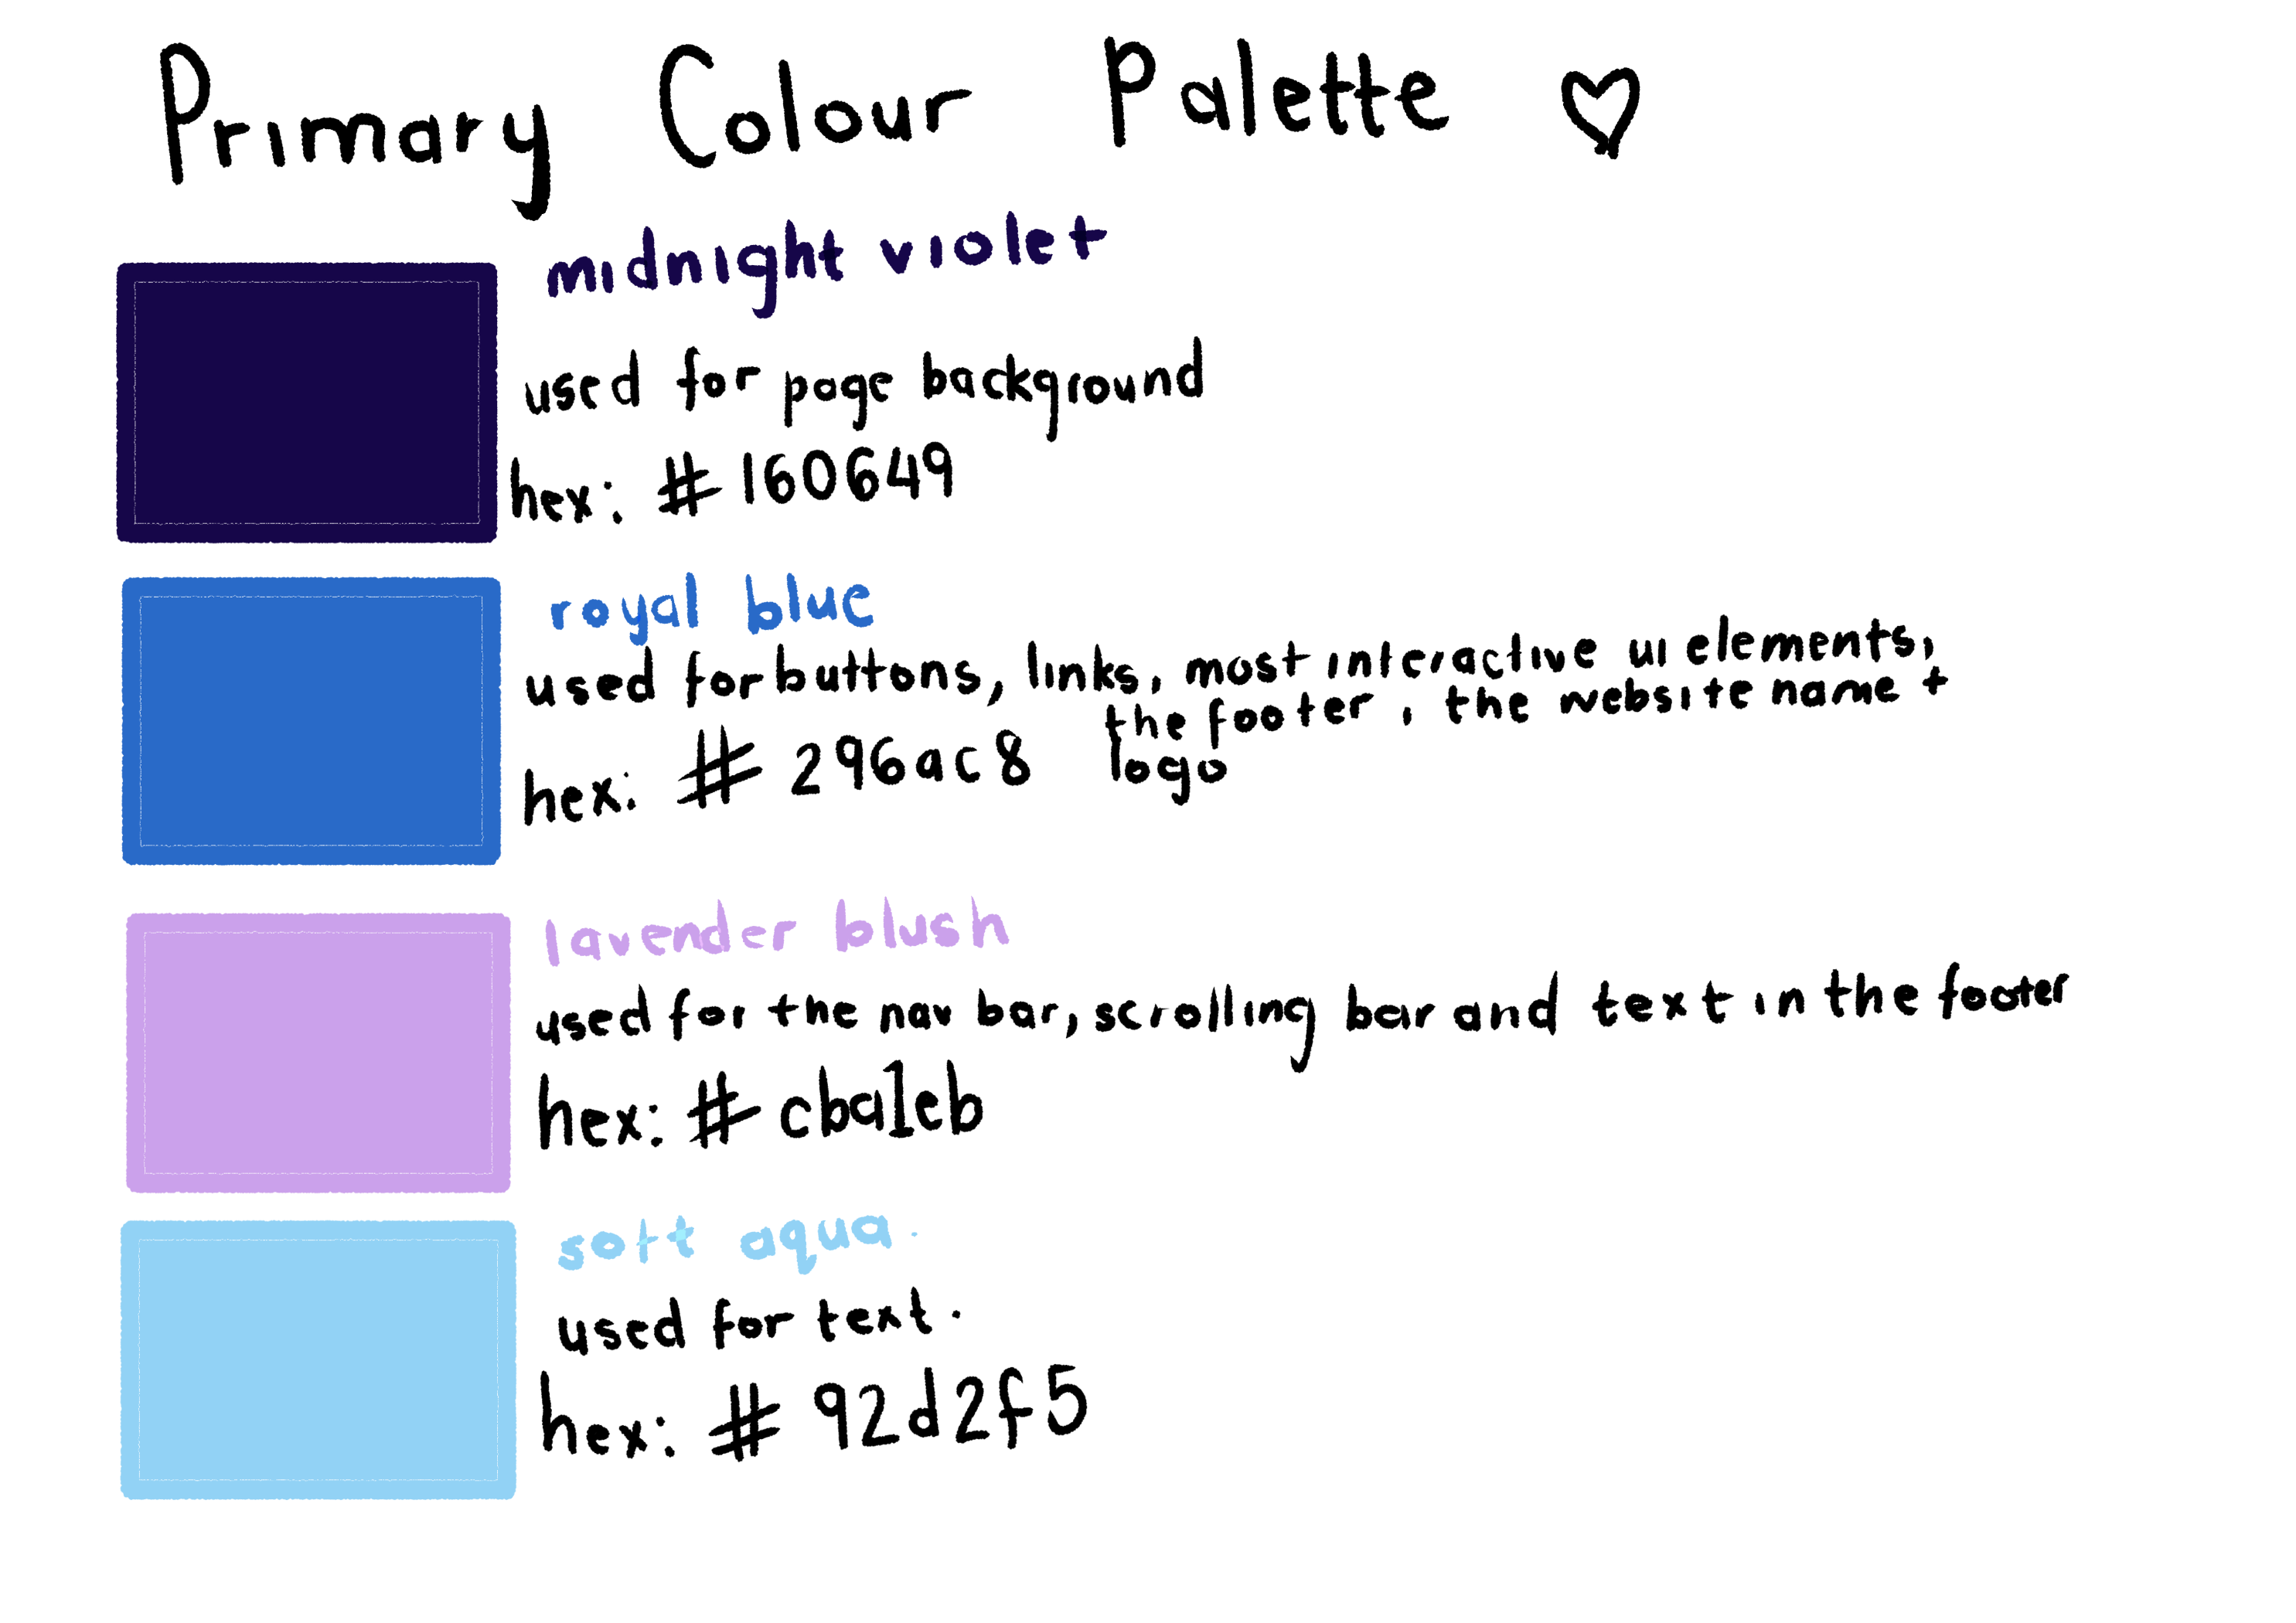 Primary Colour Palette ♡
midnight violet
used for page background
hex: #160649
royal blue
used for buttons, links, most interactive ui elements,
the footer, the website name +
logo
hex: #296ac8
lavender blush
used for the nav bar, scrolling bar and text in the footer
hex: #cba1eb
soft aqua.
used for text.
hex: #92d2f5